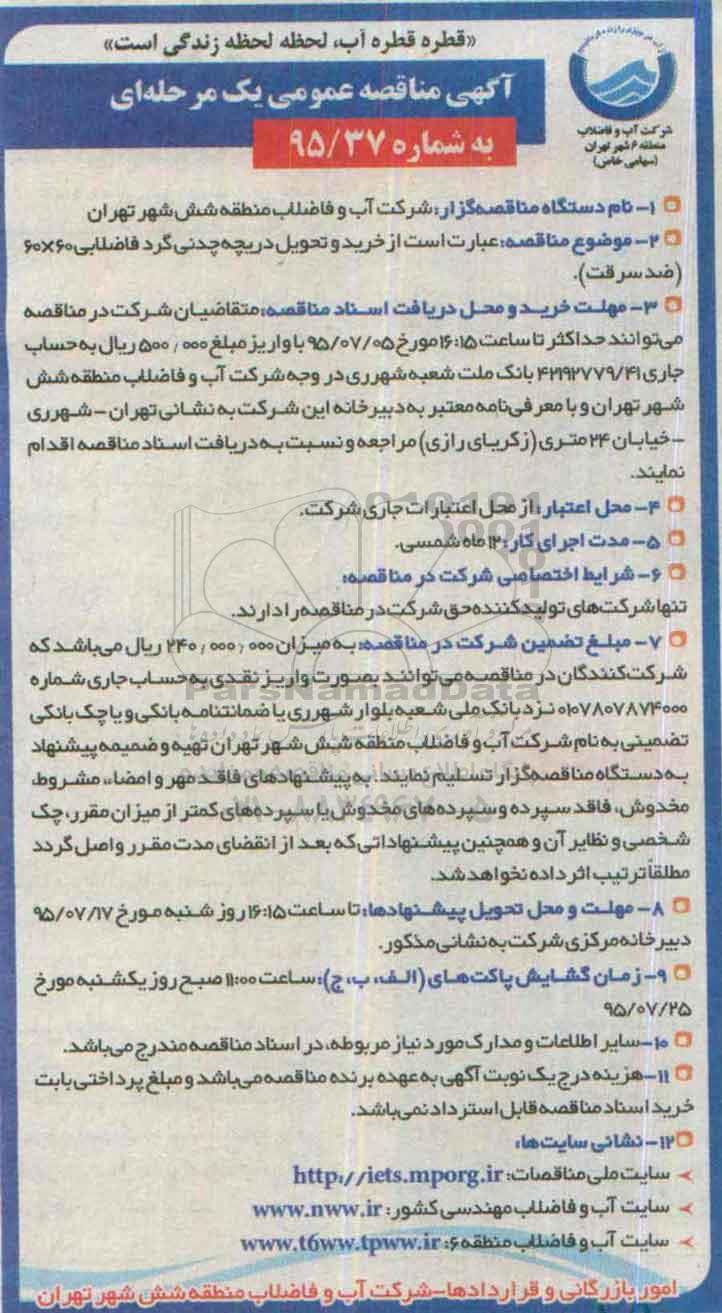 «قطره قطره آب، لحظه لحظه زندگی است»
آگهی مناقصه عمومی یک مرحله‌ای
به شماره ۹۵/۳۷
شرکت آب و فاضلاب
منطقه ۶ شهر تهران
(سهامی خاص)
۱- نام دستگاه مناقصه‌گزار: شرکت آب و فاضلاب منطقه شش شهر تهران
۲- موضوع مناقصه: عبارت است از خرید و تحویل دریچه چدنی گرد فاضلابی ۶۰×۶۰
(ضد سرقت).
۳- مهلت خرید و محل دریافت اسناد مناقصه: متقاضیان شرکت در مناقصه
می‌توانند حداکثر تا ساعت ۱۶:۱۵ مورخ ۹۵/۰۷/۰۵ با واریز مبلغ ۵۰۰,۰۰۰ ریال به حساب
جاری ۴۲۱۹۲۷۷۹/۴۱ بانک ملت شعبه شهرری در وجه شرکت آب و فاضلاب منطقه شش
شهر تهران و با معرفی‌نامه معتبر به دبیرخانه این شرکت به نشانی تهران - شهرری
- خیابان ۲۴ متری (زکریای رازی) مراجعه و نسبت به دریافت اسناد مناقصه اقدام
نمایند.
۴- محل اعتبار: از محل اعتبارات جاری شرکت.
۵- مدت اجرای کار: ۱۲ ماه شمسی.
۶- شرایط اختصاصی شرکت در مناقصه:
تنها شرکت‌های تولیدکننده حق شرکت در مناقصه را دارند.
۷- مبلغ تضمین شرکت در مناقصه: به میزان ۲۴۰,۰۰۰,۰۰۰ ریال می‌باشد که
شرکت‌کنندگان در مناقصه می‌توانند بصورت واریز نقدی به حساب جاری شماره
۰۱۰۷۸۰۷۸۷۴۰۰۰ نزد بانک ملی شعبه بلوار شهرری یا ضمانتنامه بانکی و یا چک بانکی
تضمینی به نام شرکت آب و فاضلاب منطقه شش شهر تهران تهیه و ضمیمه پیشنهاد
به دستگاه مناقصه‌گزار تسلیم نمایند. به پیشنهادهای فاقد مهر و امضاء، مشروط،
مخدوش، فاقد سپرده و سپرده‌های مخدوش یا سپرده‌های کمتر از میزان مقرر، چک
شخصی و نظایر آن و همچنین پیشنهاداتی که بعد از انقضای مدت مقرر واصل گردد
مطلقاً ترتیب اثر داده نخواهد شد.
۸- مهلت و محل تحویل پیشنهادها: تا ساعت ۱۶:۱۵ روز شنبه مورخ ۹۵/۰۷/۱۷
دبیرخانه مرکزی شرکت به نشانی مذکور.
۹- زمان گشایش پاکت‌های (الف، ب، ج): ساعت ۱۱:۰۰ صبح روز یکشنبه مورخ
۹۵/۰۷/۲۵
۱۰- سایر اطلاعات و مدارک مورد نیاز مربوطه، در اسناد مناقصه مندرج می‌باشد.
۱۱- هزینه درج یک نوبت آگهی به عهده برنده مناقصه می‌باشد و مبلغ پرداختی بابت
خرید اسناد مناقصه قابل استرداد نمی‌باشد.
۱۲- نشانی سایت‌ها:
سایت ملی مناقصات: http://iets.mporg.ir
سایت آب و فاضلاب مهندسی کشور: www.nww.ir
سایت آب و فاضلاب منطقه ۶: www.t6ww.tpww.ir
امور بازرگانی و قراردادها - شرکت آب و فاضلاب منطقه شش شهر تهران
ParsNamadData